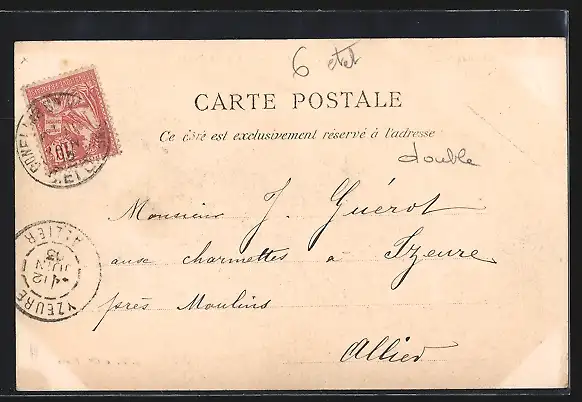 6
CARTE POSTALE
Ce côté est exclusivement réservé à l'adresse
double
Monsieur J. Guérot
aux charmettes à Izeure
près Moulins
Allier
YZEURE
ALLIER
12
JUIN
03